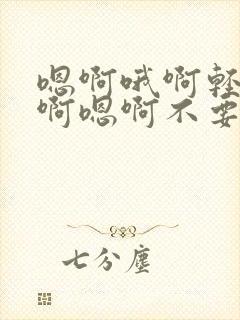 嗯啊哦啊轻
啊嗯啊不要
七分尘